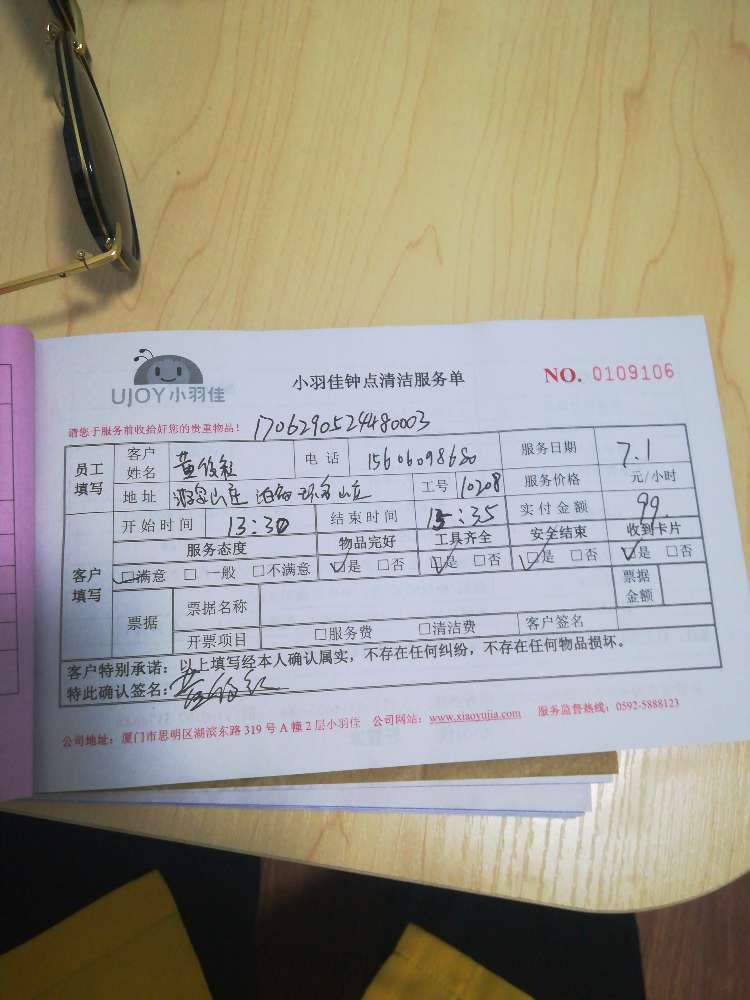 UJOY小羽佳
小羽佳钟点清洁服务单
NO. 0109106
请您于服务前收拾好您的贵重物品! 1706290524480003
员工填写 客户姓名 黄 电话 15606098680 服务日期 7.1
地址 山庄 工号 10208 服务价格 元/小时
客户填写 开始时间 13:30 结束时间 15:35 实付金额 99.
服务态度 物品完好 工具齐全 安全结束 收到卡片
□满意 □ 一般 □不满意 ☑是 □否 ☑是 □否 ☑是 □否 ☑是 □否
票据 票据名称 票据金额
开票项目 □服务费 □清洁费 客户签名
客户特别承诺：以上填写经本人确认属实，不存在任何纠纷，不存在任何物品损坏。
特此确认签名: 黄
公司地址：厦门市思明区湖滨东路 319 号 A 幢 2 层小羽佳 公司网站：www.xiaoyujia.com 服务监督热线：0592-5888123